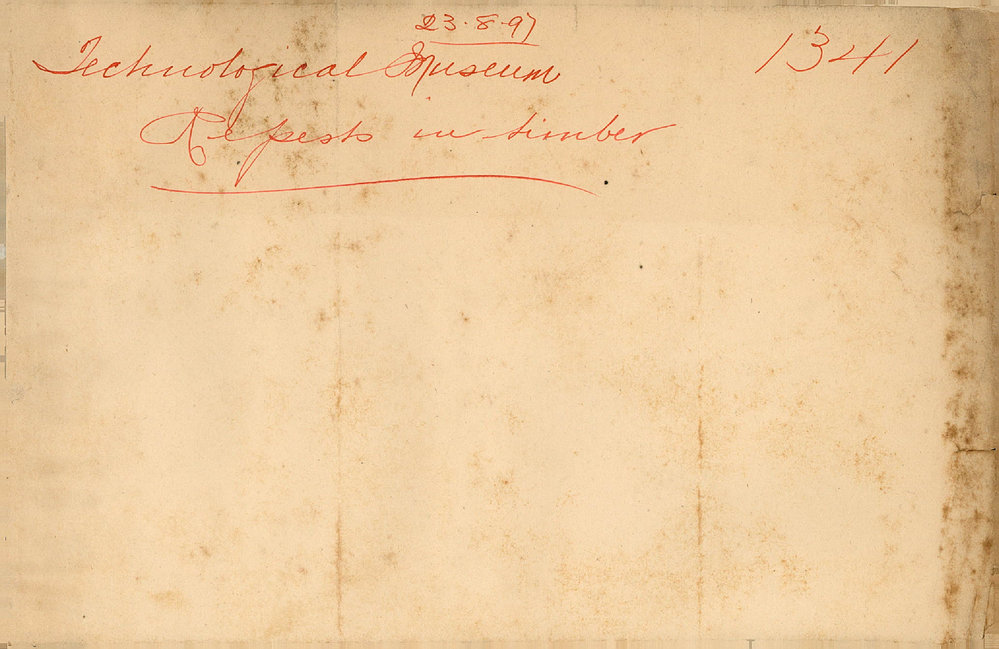 23.8.97
Technological Museum 1341
Re pests in timber